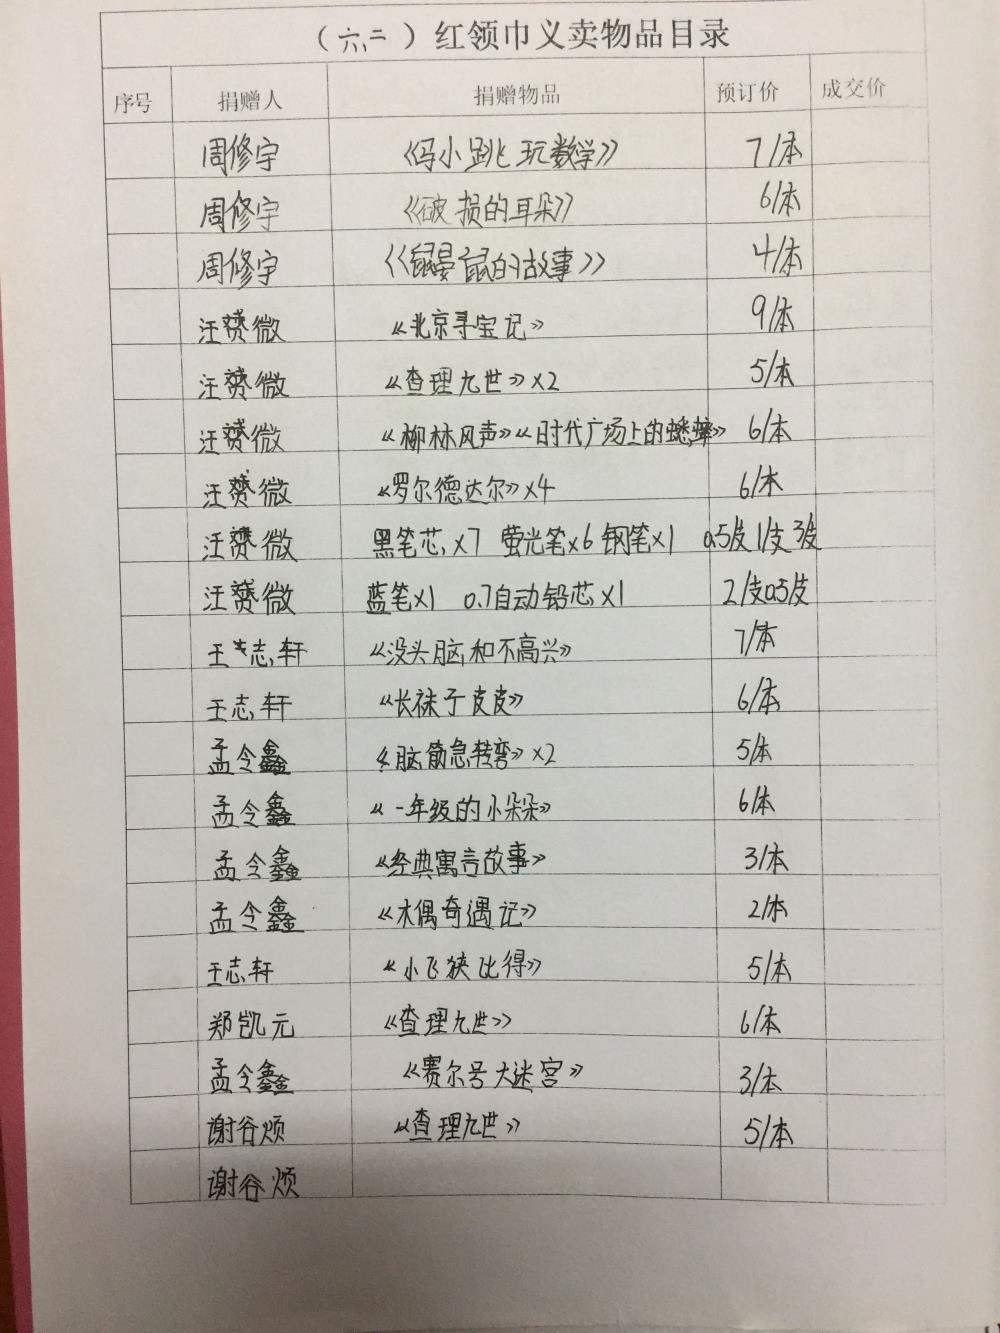 （六.二）红领巾义卖物品目录
序号 捐赠人 捐赠物品 预订价 成交价
周修宇 《冯小跳玩数学》 7/本
周修宇 《破损的耳朵》 6/本
周修宇 《鼹鼠的故事》 4/本
汪赟微 《北京寻宝记》 9/本
汪赟微 《查理九世》×2 5/本
汪赟微 《柳林风声》《时代广场上的蟋蟀》 6/本
汪赟微 《罗尔德达尔》×4 6/本
汪赟微 黑笔芯×7 萤光笔×6 钢笔×1 0.5/支 1/支 3/支
汪赟微 蓝笔×1 0.7自动铅芯×1 2/支 0.5/支
王志轩 《没头脑和不高兴》 7/本
王志轩 《长袜子皮皮》 6/本
孟令鑫 《脑筋急转弯》×2 5/本
孟令鑫 《一年级的小朵朵》 6/本
孟令鑫 《经典寓言故事》 3/本
孟令鑫 《木偶奇遇记》 2/本
王志轩 《小飞狭比得》 5/本
郑凯元 《查理九世》 6/本
孟令鑫 《赛尔号大迷宫》 3/本
谢谷烦 《查理九世》 5/本
谢谷烦